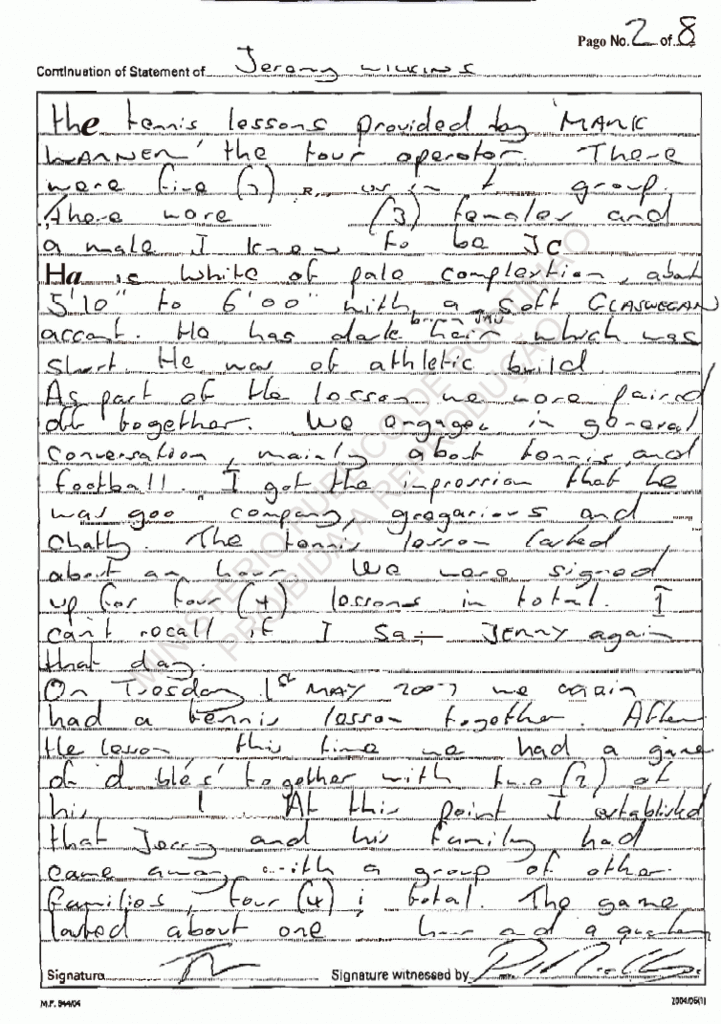 Page No. 2 of 8
Continuation of Statement of Jeremy WILKINS
the tennis lessons provided by 'MARK
WARNER' the tour operator. There
were five () us in group.
There were (3) females and
a male I know to be
He is white of pale complextion, about
5'10" to 6'00" with a soft GLASWEGAN
accent. He has dark hair which was
short. He was of athletic build
As part of the lesson we were paired
off together. We engaged in general
conversation, mainly about tennis and
football. I got the impression that he
was goo company, gregarious and
chatty. The tennis lesson lasted
about an hour. We were signed
up for four (4) lessons in total. I
can't recall if I JERRY again
that day.
On Tuesday 1st MAY 2007 we again
had a tennis lesson together. After
the lesson this time we had a game
of 'd bles' together with two (2) of
his At this point I established
that Jerry and his family had
came away with a group of other
families, four (4) i total. The game
lasted about one hour and a quarter
Signature
Signature witnessed by
M.F. 944/04
2004/05(1)
MINISTÉRIO PÚBLICO DE PORTIMÃO
PROIBIDA A REPRODUÇÃO